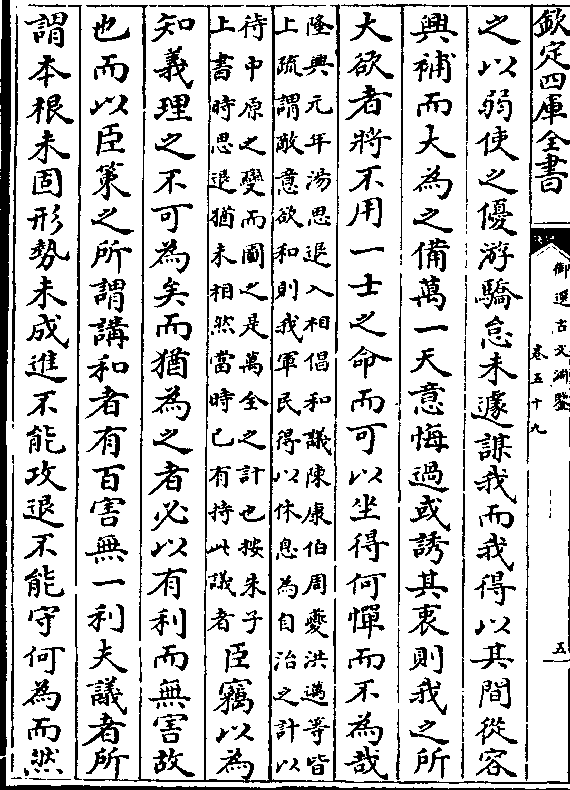 欽定四庫全書
御選古文淵鑒
卷五十九
五
之以弱使之優游驕怠未遽謀我而我得以其間從容
興補而大為之備萬一天意悔過或誘其衷則我之所
大欲者將不用一士之命而可以坐得何憚而不為哉
隆興元年湯思退入相倡和議陳康伯周夔洪邁等皆
上疏謂敵意欲和則我軍民得以休息為自治之計以
待中原之變而圖之是萬全之計也按朱子
上書時思退猶未相然當時已有持此議者
臣竊以為
知義理之不可為矣而猶為之者必以有利而無害故
也而以臣策之所謂講和者有百害無一利夫議者所
謂本根未固形勢未成進不能攻退不能守何為而然